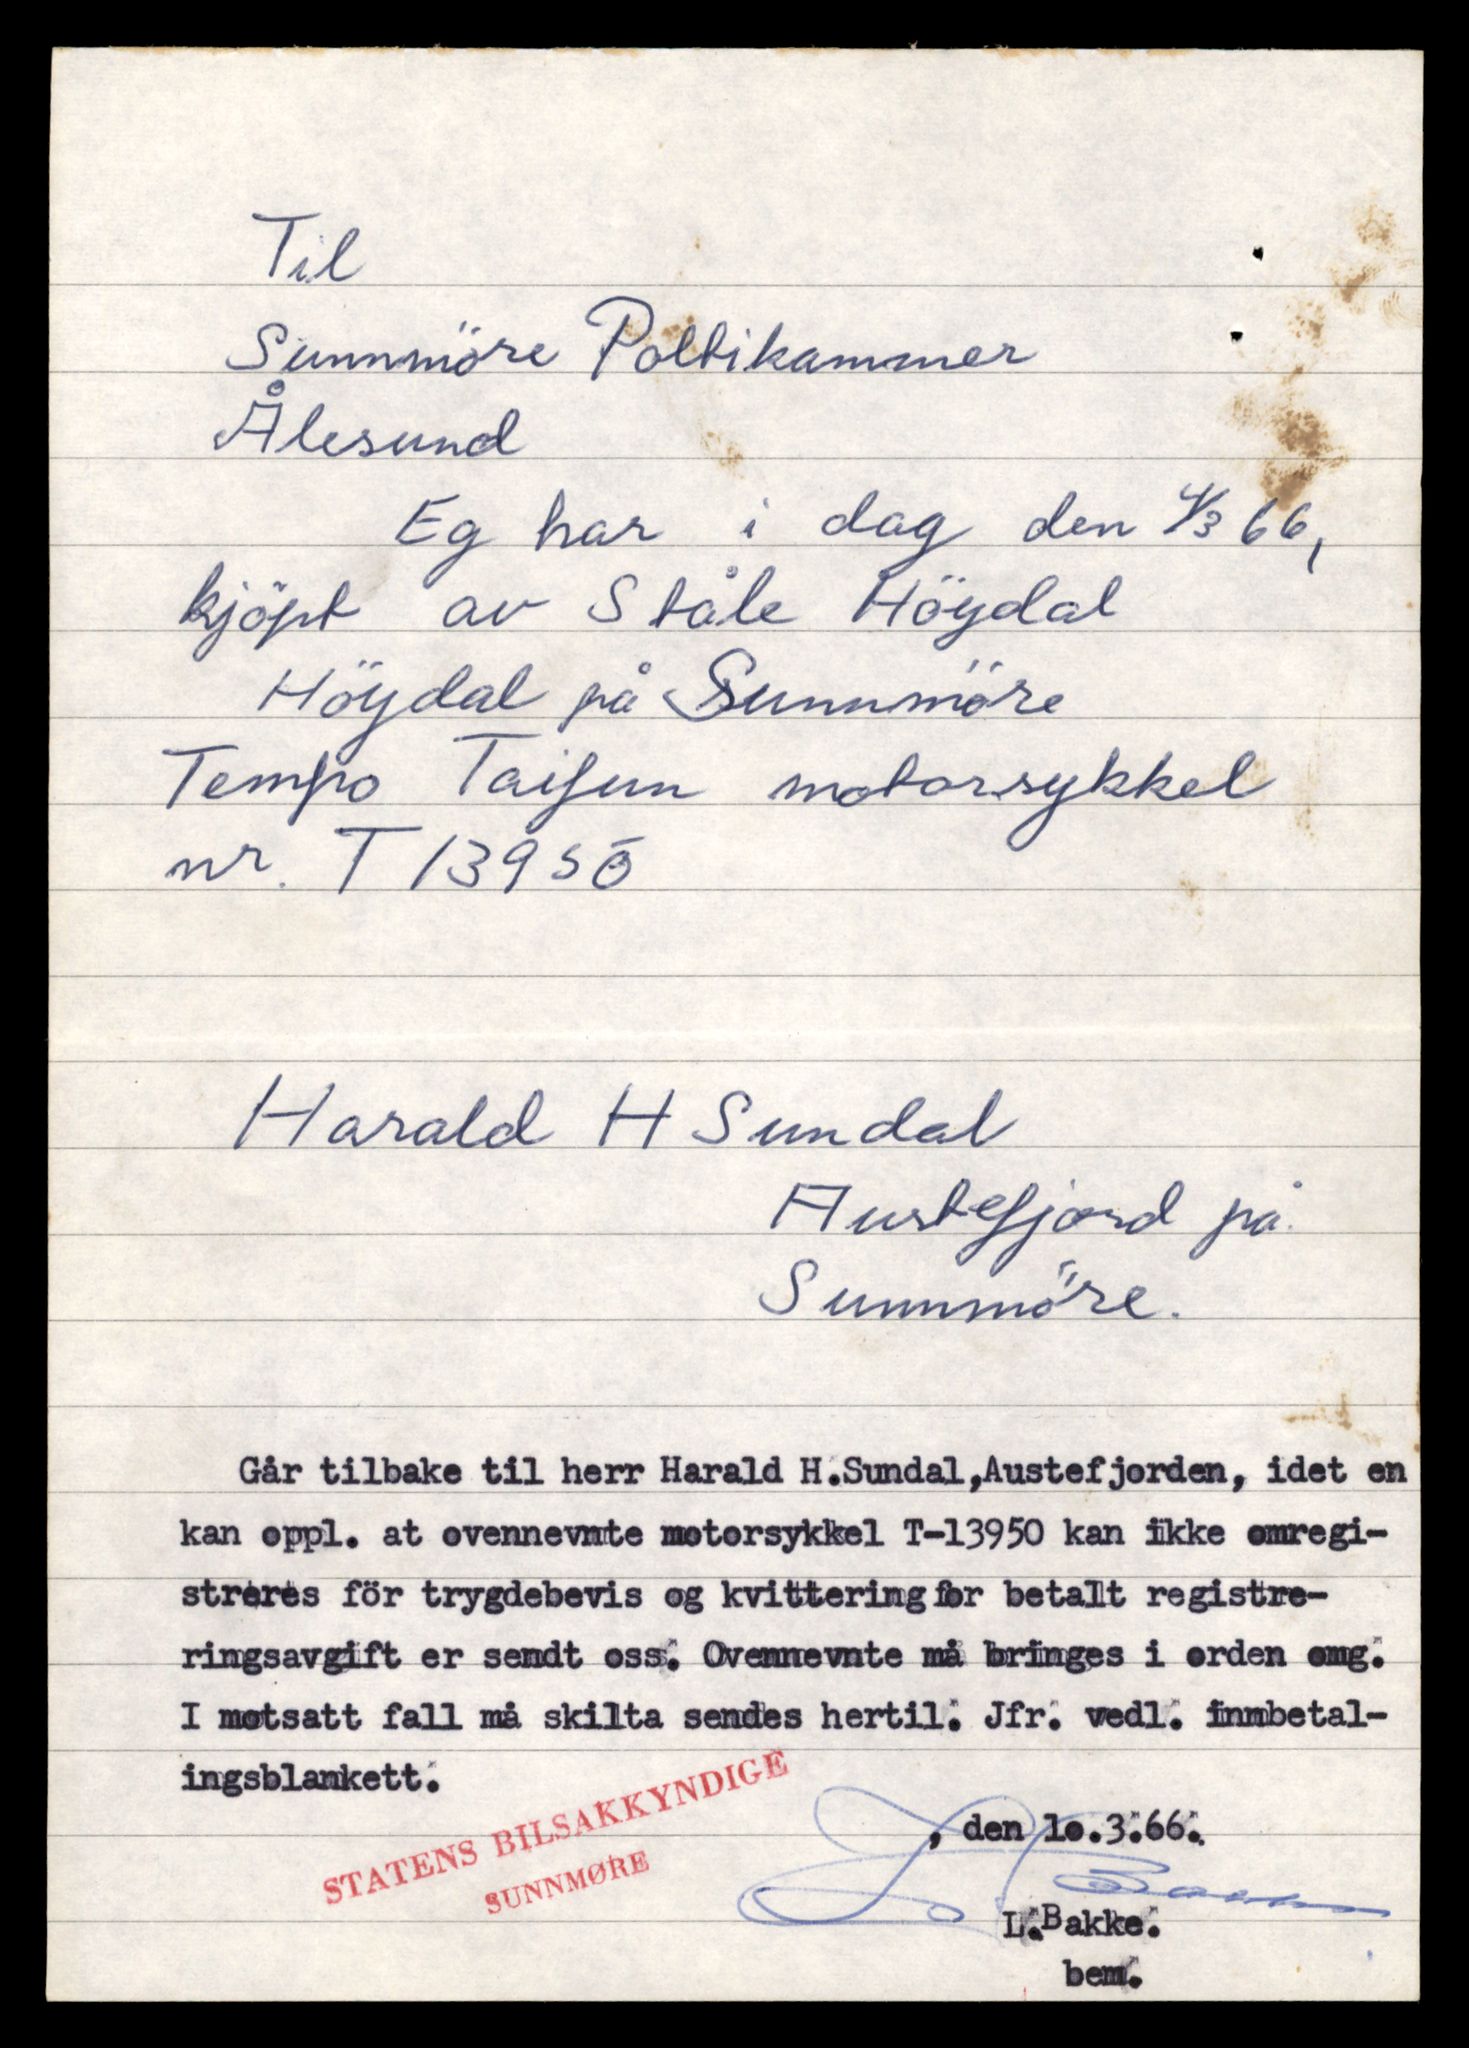 Til
Sunnmöre Poltikammer
Ålesund
Eg har i dag den 4/3 66,
kjöpt av Ståle Höydal
Höydal på Sunnmöre
Tempo Taifun motorsykkel
nr. T 13950
Harald H Sundal
Austefjord på
Sunnmöre.
Går tilbake til herr Harald H.Sundal,Austefjorden, idet en
kan oppl. at ovennevnte motorsykkel T-13950 kan ikke omregi-
streres för trygdebevis og kvittering for betalt registre-
ringsavgift er sendt oss. Ovennevnte må bringes i orden omg.
I motsatt fall må skilta sendes hertil. Jfr. vedl. innbetal-
ingsblankett.
STATENS BILSAKKYNDIGE
SUNNMØRE
, den 1o.3.66.
L. Bakke
L.Bakke.
bem.